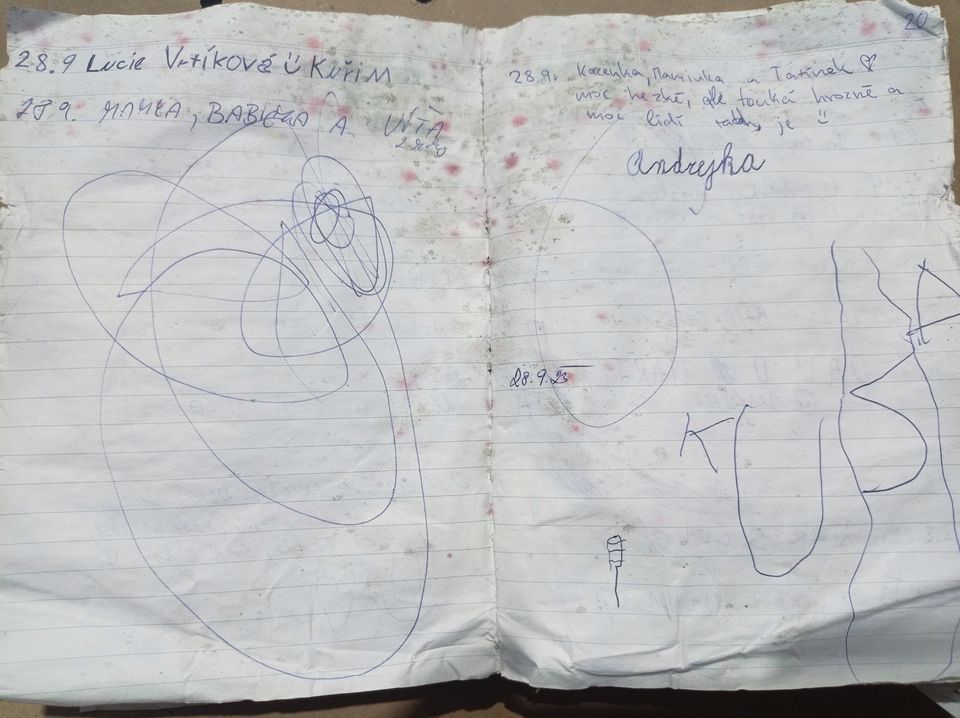 28.9 Lucie Vrtíková Ü Kuřim
28 9. MAMKA, BABIČKA A VÍŤA
20
28.9. Kačenka, Maminka a Tatínek ♡
moc hezké, ale fouká hrozně a
moc lidí tady je Ü
Andrejka
28.9.23
KUBA